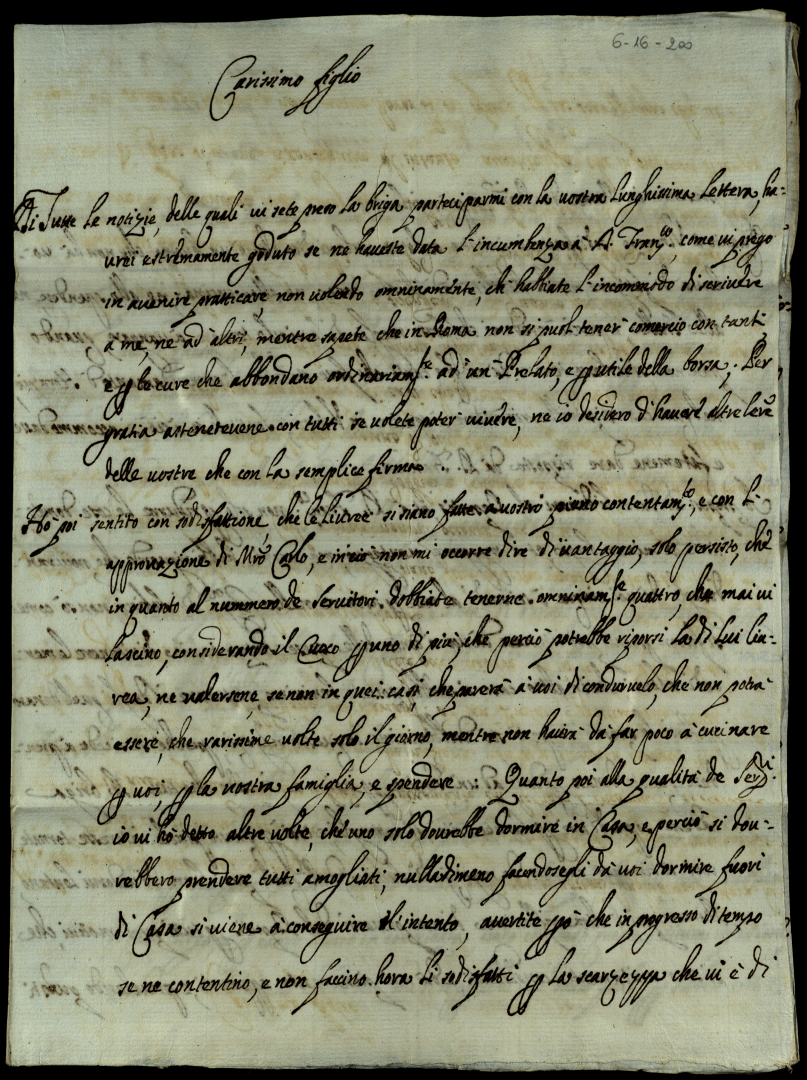 6-16-200
Carissimo figlio
Di Tutte le notizie, delle quali vi sete preso la briga parteciparmi con la vostra lunghissima lettera, ha-
urei estremamente goduto se ne haueste data l'incumbenza à D. Fran.co, come vi prego
in auenire pratticare, non volendo omninamente, ch'habbiate l'incommodo di scriuere
a me, ne ad altri, mentre sapete che in Roma non si puol tener comercio con tanti,
e p le cure che abbondano ordinariam.te ad un Prelato, e p utile della borsa; Per
gratia astenetevene con tutti se volete poter viuere, ne io desidero d'hauere altre lere
delle vostre che con la semplice firma.
Ho poi sentito con sodisfattione, che le liuree si siano fatte à vostro pieno contentam.to, e con l'
approvazione di Mro Carlo, e in ciò non mi occorre dire di vantaggio, solo persisto, che
in quanto al nummero de Seruitori dobbiate tenerne omninam.te quattro, che mai vi
lascino, considerando il Cuoco p uno di più, che perciò potrebbe riporsi la di lui liu-
rea, ne valersene, se non in quei casi, che parerà à voi di condurvelo, che non potrà
essere, che rarissime volte solo il giorno, mentre non hauerà dà far poco à cucinare
p voi, p la vostra famiglia, e spendere: Quanto poi alla qualità de Ser.ri
io vi hò detto altre volte, che uno solo dourebbe dormire in Casa, e perciò si dou-
rebbero prendere tutti amogliati, nulladimeno facendosegli dà voi dormire fuori
di Casa si viene à conseguire l'intento, auertite pò che in progresso di tempo
se ne contentino, e non faccino hora li sodisfatti p la scarzezza che vi è di